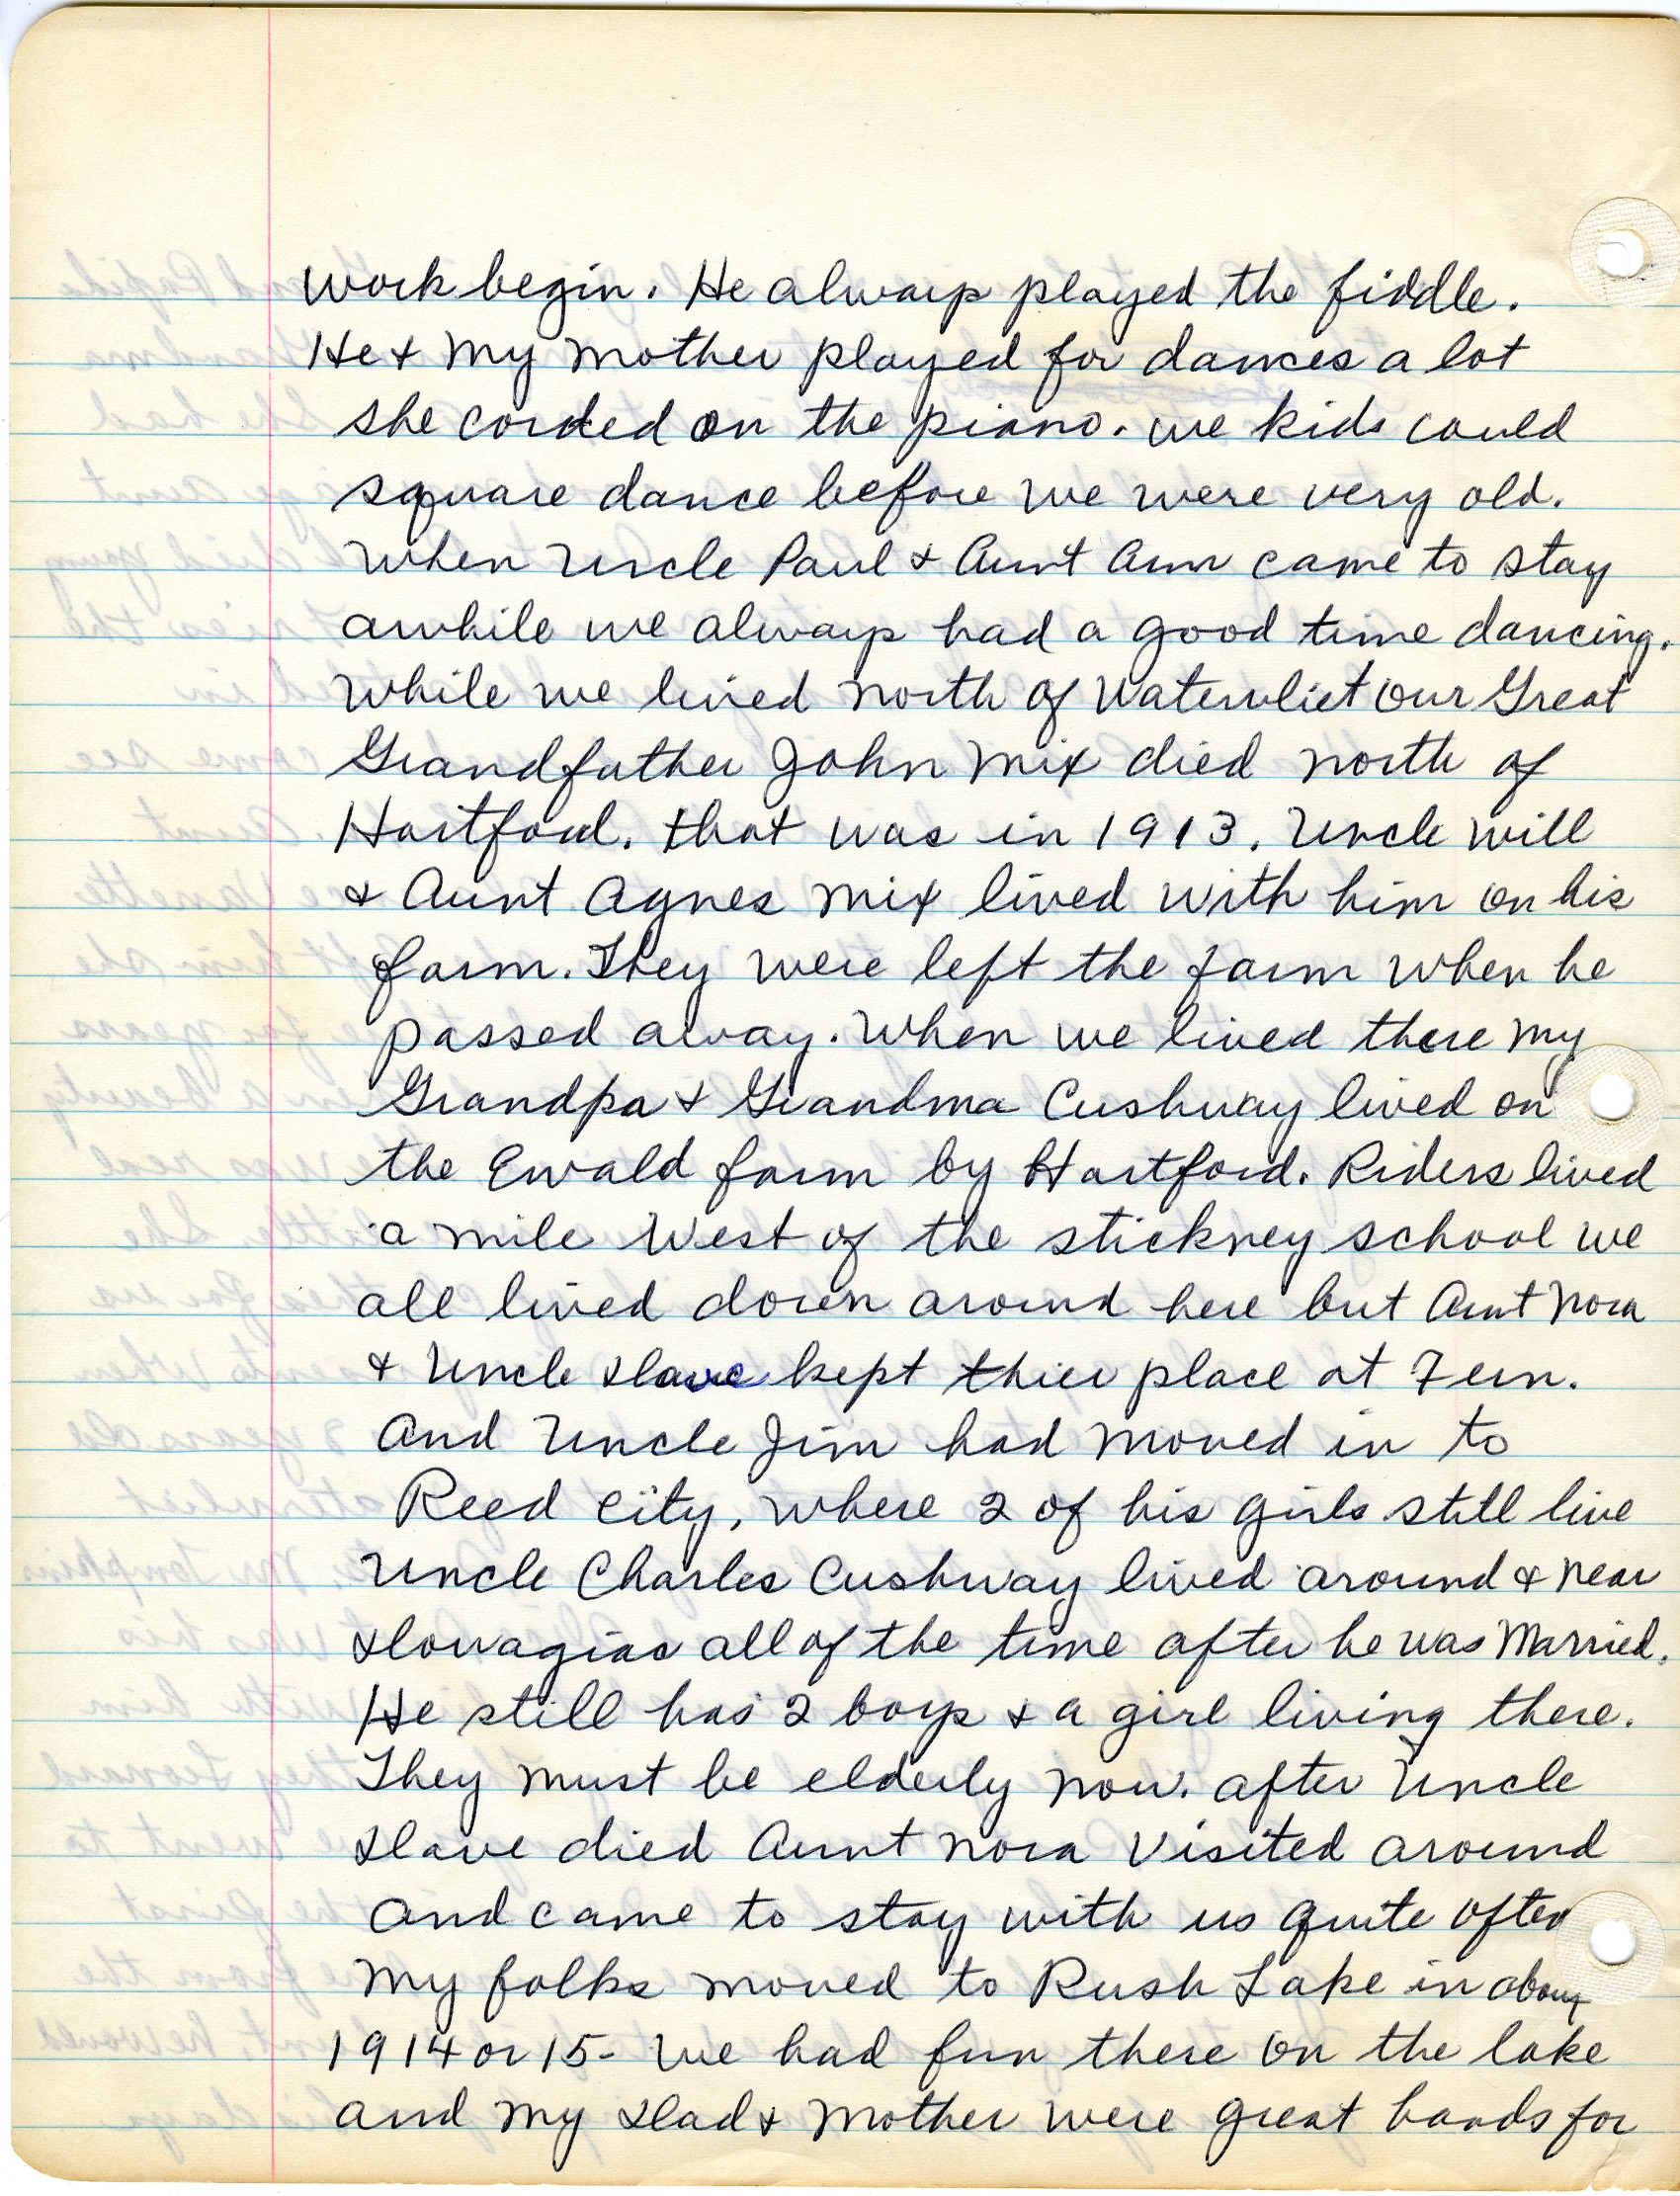 work begin. He always played the fiddle.
He & my mother played for dances a lot
she corded on the piano. we kids could
square dance before we were very old.
When Uncle Paul & Aunt Ann came to stay
awhile we always had a good time dancing.
While we lived North of Watervliet our Great
Grandfather John Mix died north of
Hartford. that was in 1913. Uncle Will
& Aunt Agnes Mix lived with him on his
farm. They were left the farm when he
passed away. When we lived there my
Grandpa & Grandma Cushway lived on
the Ewald farm by Hartford. Riders lived
a mile West of the stickney school we
all lived down around here but Aunt Nora
& Uncle Dave kept thier place at Fern.
And Uncle Jim had moved in to
Reed City, where 2 of his girls still live
Uncle Charles Cushway lived around & near
Dowagiac all of the time after he was Married.
He still has 2 boys & a girl living there.
They must be elderly now. after Uncle
Dave died Aunt Nora visited around
and came to stay with us quite often
My folks moved to Rush Lake in about
1914 or 15- We had fun there on the lake
and my Dad & Mother were great hands for